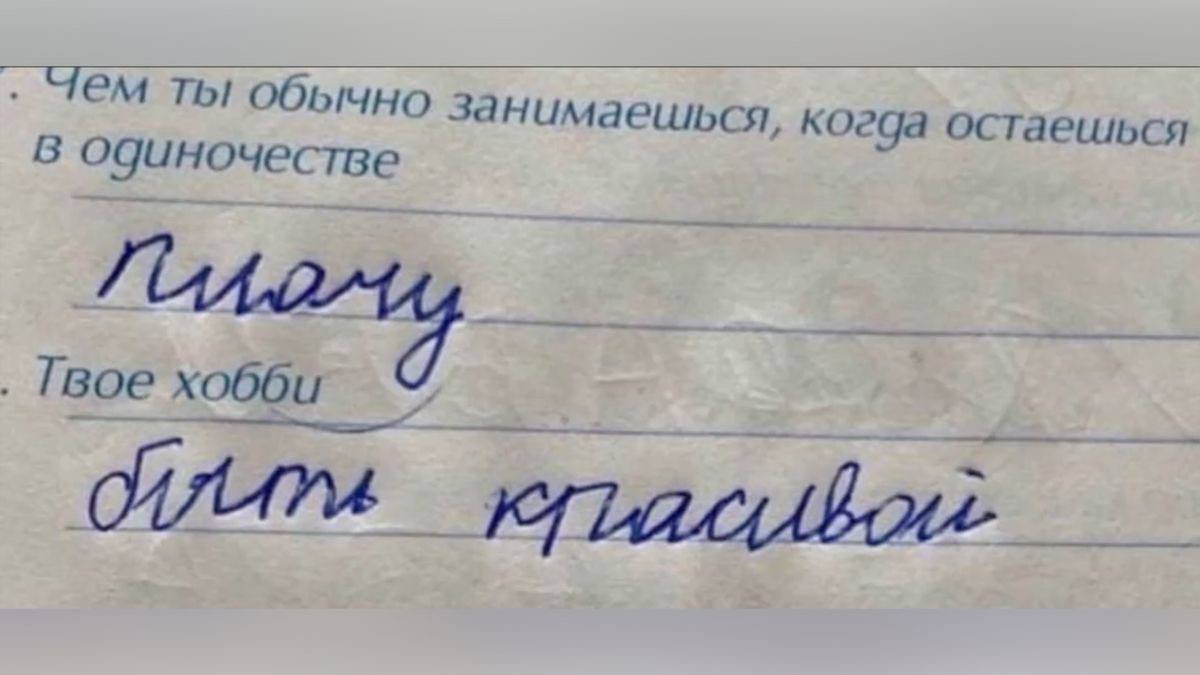 . Чем ты обычно занимаешься, когда остаешься
в одиночестве
плачу
. Твое хобби
быть красивой